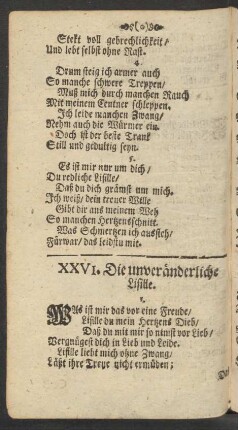 Stekt voll gebrechlichkeit/
Und lebt selbst ohne Rast.
4.
Drum steig ich armer auch
So manche schwere Treppen/
Muß mich durch manchen Rauch
Mit meinem Centner schleppen.
Ich leide manchen Zwang/
Nehm auch die Würmer ein.
Doch ist der beste Tranck
Still und gedultig seyn.
5.
Es ist mir nur um dich/
Du redliche Lisille/
Daß du dich grämst um mich.
Ich weiß/ dein treuer Wille
Gibt dir aus meinem Weh
So manchen Hertzensschnitt.
Was Schmertzen ich aussteh/
Fürwar/ das leidstu mit.
XXVI. Die unveränderliche
Lisille.
1.
WAs ist mir das vor eine Freude/
Lisille du mein Hertzens Dieb/
Daß du mit mir so nimst vor Lieb/
Vergnügest dich in Lieb und Leide.
Lisille liebt mich ohne Zwang/
Läßt ihre Treye nicht ermüden;